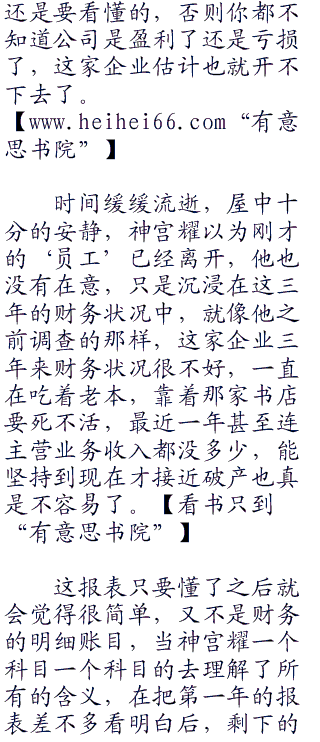 还是要看懂的，否则你都不
知道公司是盈利了还是亏损
了，这家企业估计也就开不
下去了。
【www.heihei66.com“有意
思书院”】
时间缓缓流逝，屋中十
分的安静，神宫耀以为刚才
的‘员工’已经离开，他也
没有在意，只是沉浸在这三
年的财务状况中，就像他之
前调查的那样，这家企业三
年来财务状况很不好，一直
在吃着老本，靠着那家书店
要死不活，最近一年甚至连
主营业务收入都没多少，能
坚持到现在才接近破产也真
是不容易了。【看书只到
“有意思书院”】
这报表只要懂了之后就
会觉得很简单，又不是财务
的明细账目，当神宫耀一个
科目一个科目的去理解了所
有的含义，在把第一年的报
表差不多看明白后，剩下的